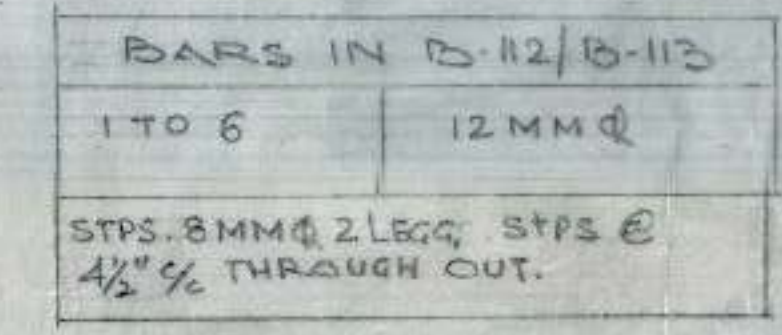 BARS IN B-112/B-113
1 TO 6 12 MM Φ
STPS. 8 MM Φ 2 LEGG, STPS @
4½" c/c THROUGH OUT.